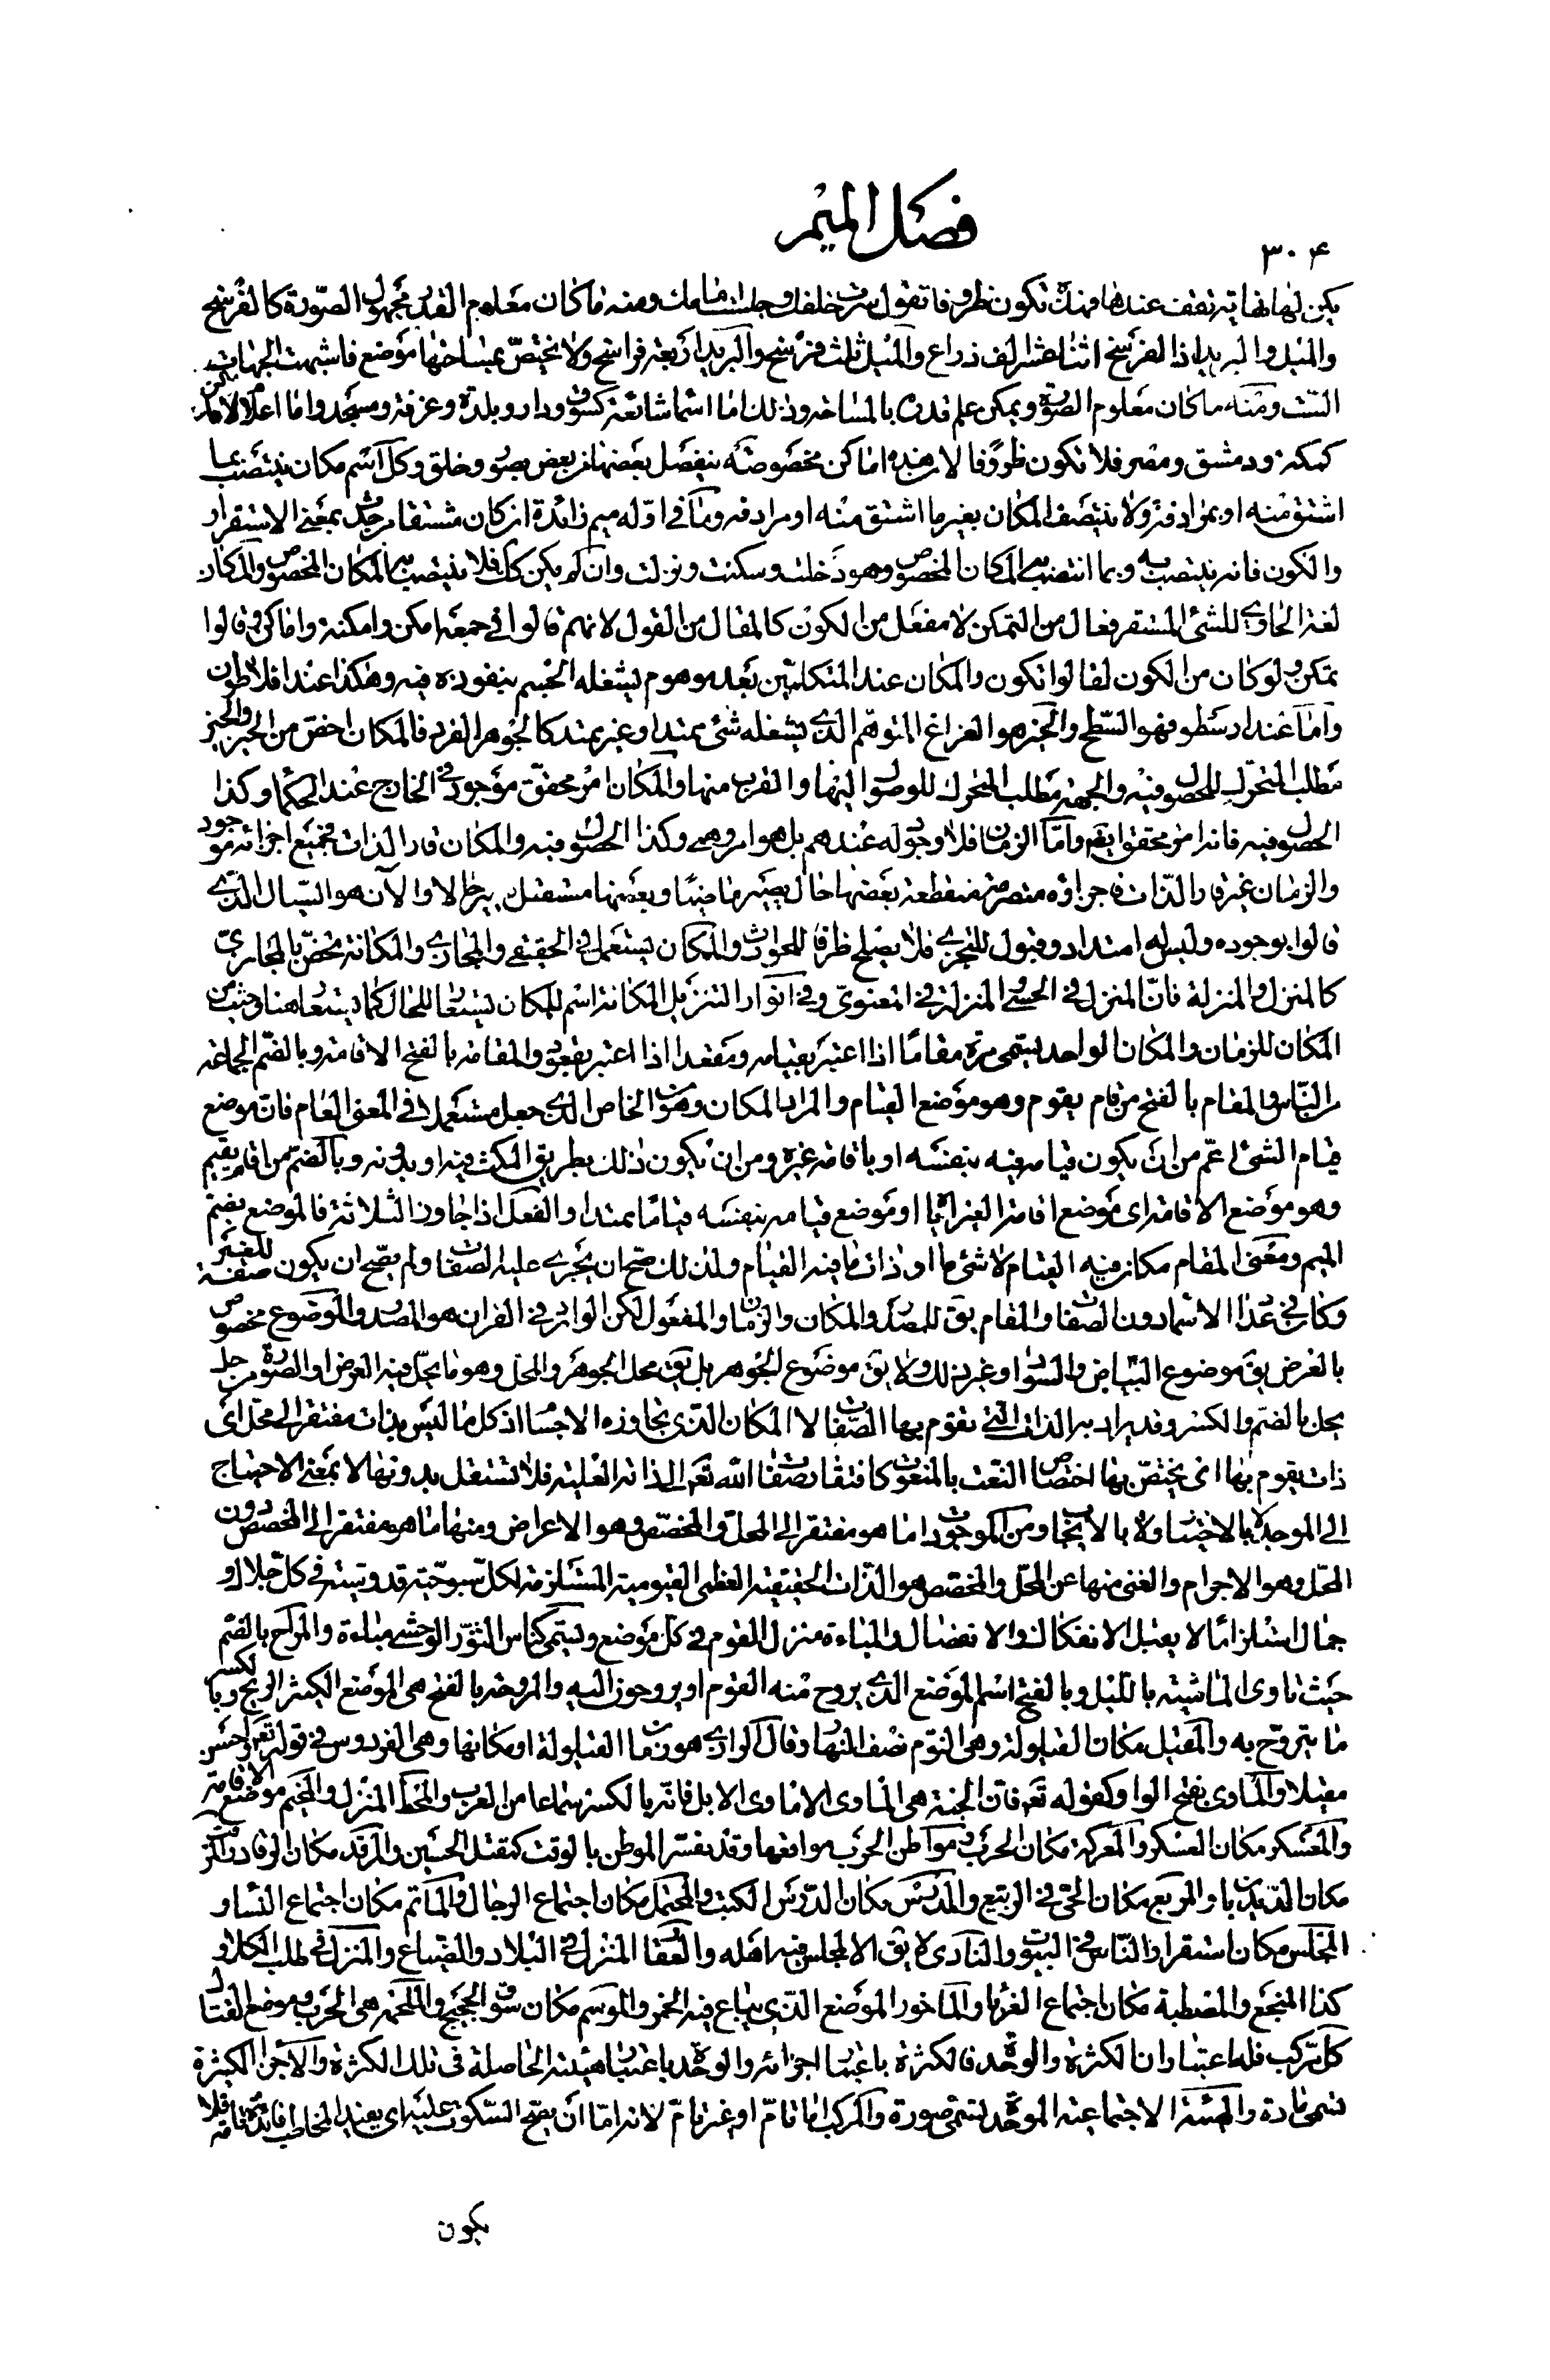 فصل الميم
٣٠۴
يكن لها نهاية تقف عندها فهذه تكون ظروفا تقول سرت خلفك وجلست امامك ومنه ما كان معلوم القدر مجهول الصورة كالفرسخ
والميل والبريد اذ الفرسخ اثنا عشر الف ذراع والميل ثلث فرسخ والبريد اربعة فراسخ ولا يختص بمساحتها موضع فاشبهت الجهات
الست ومنه ما كان معلوم الصورة ويمكن علم قدره بالمساحة وذلك اما اسما شائعة كسوق ودار وبلدة وغرفة ومسجد واما اعلاما لاماكن
كمكة ودمشق ومصر فلا تكون ظروفا لان هذه اماكن مخصوصة ينفصل بعضها من بعض بصور وخلق وكل اسم مكان ينتصب بما
اشتق منه او بمرادفه ولا ينتصف المكان بغير ما اشتق منه او مرادفه وما في اوله ميم زائدة ان كان مشتقا من حدث بمعنى الاستقرار
والكون فانه ينتصب به وبما انتصب به المكان المخصوص وهو دخلت وسكنت ونزلت وان لم يكن كك فلا ينتصب بها المكان المخصوص والمكان
لغة الحاوي للشئ المستقر فعال من التمكن لا مفعل من الكون كالمقال من القول لانهم قالوا في جمعه امكن وامكنة واماكن وقالوا
تمكن ولو كان من الكون لقالوا تكون والمكان عند المتكلمين بعد موهوم يشغله الجسم بنفوذه فيه وهكذا عند افلاطون
واما عند ارسطو فهو السطح والحيز هو الفراغ المتوهم الذي يشغله شئ ممتد او غير ممتد كالجوهر الفرد فالمكان اخص من الحيز والحيز
مطلب المتحرك للحصول فيه والجهة مطلب المتحرك للوصول اليها والقرب منها والمكان امر محقق موجود في الخارج عند الحكماء وكذا
الحصول فيه فانه امر محقق ايضا واما الزمان فلا وجود له عندهم بل هو امر وهمي وكذا الحصول فيه والمكان قار الذات فجميع اجزائه موجود
والزمان غير قار الذات فاجزاؤه متصرمة منقطعة بعضها حال يصير ماضيا وبعضها مستقبل يصير حالا والآن هو السيال الذي
قالوا بوجوده وليس له امتداد وقبول للتجزي فلا يصلح ظرفا للحوادث والمكان يستعمل في الحقيقي والمجازي والمكانة تختص بالمجازي
كالمنزل والمنزلة فان المنزل في الحسي والمنزلة في المعنوي وفي انوار التنزيل المكانة اسم للمكان يستعار للحال كما يستعار هنا وحيث من
المكان للزمان والمكان الواحد يسمى مرة مقاما اذا اعتبر بقيامه ومقعدا اذا اعتبر بقعود والمقامة بالفتح الاقامة وبالضم الجماعة
من الناس والمقام بالفتح من قام يقوم وهو موضع القيام والمراد المكان وهو من الخاص الذي جعل مستعملا في المعنى العام فان موضع
قيام الشئ اعم من ان يكون قيامه فيه بنفسه او باقامة غيره ومن ان يكون ذلك بطريق المكث فيه او بدونه وبالضم من اقام يقيم
وهو موضع الاقامة اي موضع اقامة الغير اياه او موضع قيامه بنفسه قياما ممتدا والفعل اذا جاوز الثلاثة فالموضع بضم
الميم ومعنى المقام مكان فيه القيام لا شئ ما او ذات ما فيه القيام ولذلك صح ان يجري عليه الصفات ولم يصح ان يكون صفة للغير
وكان في عداد الاسماء دون الصفات والمقام يق للمصدر والمكان والزمان والمفعول لكن الوارد في القران هو المصدر والموضوع مخصوص
بالعرض يق موضوع البياض والسواد وغير ذلك ولا يق موضوع الجوهر بل يق محل الجوهر والمحل وهو ما يحل فيه العرض او الصورة من حل
يحل بالضم والكسر وقد يراد به الذات التي تقوم بها الصفات لا المكان الذي تجاوزه الاجسام اذ كل ما ليس بذات مفتقر الى محل اي
ذات يقوم بها اي يختص بها اختصاص النعت بالمنعوت كافتقار صفات الله تعم الى ذاته العلية فلا تستقل بدونها لا بمعنى الاحتياج
الى الموجد لا بالاختيار ولا بالايجاب ومن الموجودات ما هو مفتقر الى المحل والمخصص وهو الاعراض ومنها ما هو مفتقر الى المخصص دون
المحل وهو الاجرام والغني منها عن المحل والمخصص هو الذات الحقيقية العظمى القيومية المستلزمة لكل سبوحية قدوسية في كل جلال و
جمال استلزاما لا يقبل الانفكاك والانفصال والمباءة منزل القوم في كل موضع ويسمى كناس الثور الوحشي مباءة والمراح بالضم
حيث تاوي الماشية بالليل وبالفتح اسم الموضع الذي يروح منه القوم او يروحون اليه والمروحة بالفتح هي الموضع الكثير الريح وبالكسر
ما يتروح به والمقيل مكان القيلولة وهي النوم نصف النهار وقال الواحدي هو زمان القيلولة او مكانها وهي الفردوس في قوله تعم واحسن
مقيلا والمأوى بفتح الواو كقوله تعم فان الجنة هي المأوى الا مأوى الابل فانه بالكسر سماعا من العرب والمحط المنزل والمخيم موضع الاقامة
والمعسكر مكان العسكر والمعركة مكان الحرب ومواطن الحرب مواقعها وقد يفسر الموطن بالوقت كمقتل الحسين والمرقد مكان الرقاد
مكان والمربع مكان الحي في الربيع والمدرس مكان الدرس الكتب والمحفل مكان اجتماع الرجال والمأتم مكان اجتماع النساء و
المجلس مكان استقرار الناس في البيوت والنادي لا يق الا لمجلس فيه اهله والمنزل في البلاد والضياع والمنزل في طلب الكلاء و
كذا المنجع والمصطبة مكان اجتماع الغرباء والماخور الموضع الذي يباع فيه الخمر والموسم مكان سوق الحجيج والملحمة هي الحرب وموضع القتال
كل مركب فله اعتباران الكثرة والوحدة فالكثرة باعتبار اجزائه والوحدة باعتبار هيئته الحاصلة في تلك الكثرة والاجزاء الكثيرة
تسمى مادة والهيئة الاجتماعية الموحدة تسمى صورة والمركب اما تام او غير تام لانه اما ان يصح السكوت عليه اي يفيد المخاطب فائدة تامة فلا
يكون